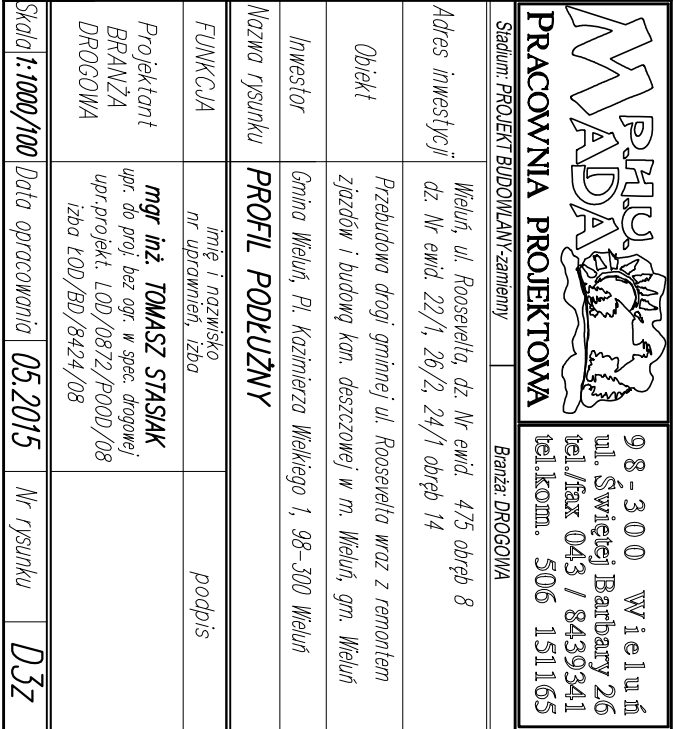 P.H.U.
MADA
PRACOWNIA PROJEKTOWA
98-300 Wieluń
ul. Świętej Barbary 26
tel./fax 043 / 8439341
tel.kom. 506 151165
Stadium: PROJEKT BUDOWLANY-zamienny
Branża: DROGOWA
Adres inwestycji
Wieluń, ul. Roosevelta, dz. Nr ewid. 475 obręb 8
dz. Nr ewid. 22/1, 26/2, 24/1 obręb 14
Obiekt
Przebudowa drogi gminnej ul. Roosevelta wraz z remontem
zjazdów i budową kan. deszczowej w m. Wieluń, gm. Wieluń
Inwestor
Gmina Wieluń, Pl. Kazimierza Wielkiego 1, 98-300 Wieluń
Nazwa rysunku
PROFIL PODŁUŻNY
FUNKCJA
imię i nazwisko
nr uprawnień, izba
podpis
Projektant
BRANŻA
DROGOWA
mgr inż. TOMASZ STASIAK
upr. do proj. bez ogr. w spec. drogowej
upr.projekt. LOD/0872/POOD/08
izba ŁOD/BD/8424/08
Skala 1:1000/100
Data opracowania
05.2015
Nr rysunku
D3z